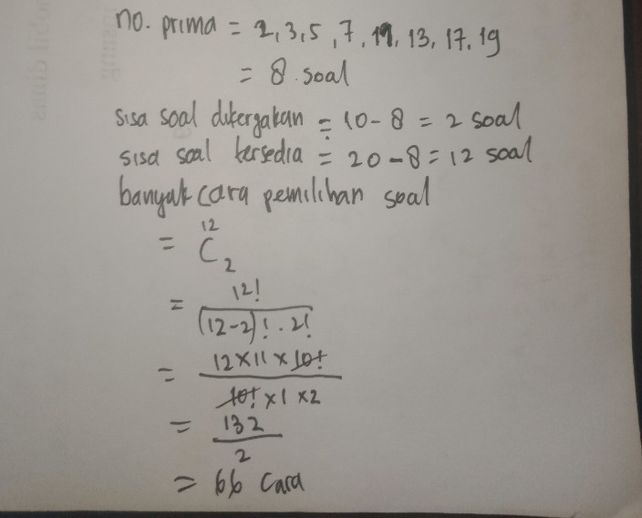 no. prima = 2, 3, 5, 7, 11, 13, 17, 19
= 8 soal
sisa soal dikerjakan = 10 - 8 = 2 soal
sisa soal tersedia = 20 - 8 = 12 soal
banyak cara pemilihan soal
= 12 C 2
= 12! / (12-2)! . 2!
= 12 x 11 x 10! / 10! x 1 x 2
= 132 / 2
= 66 cara